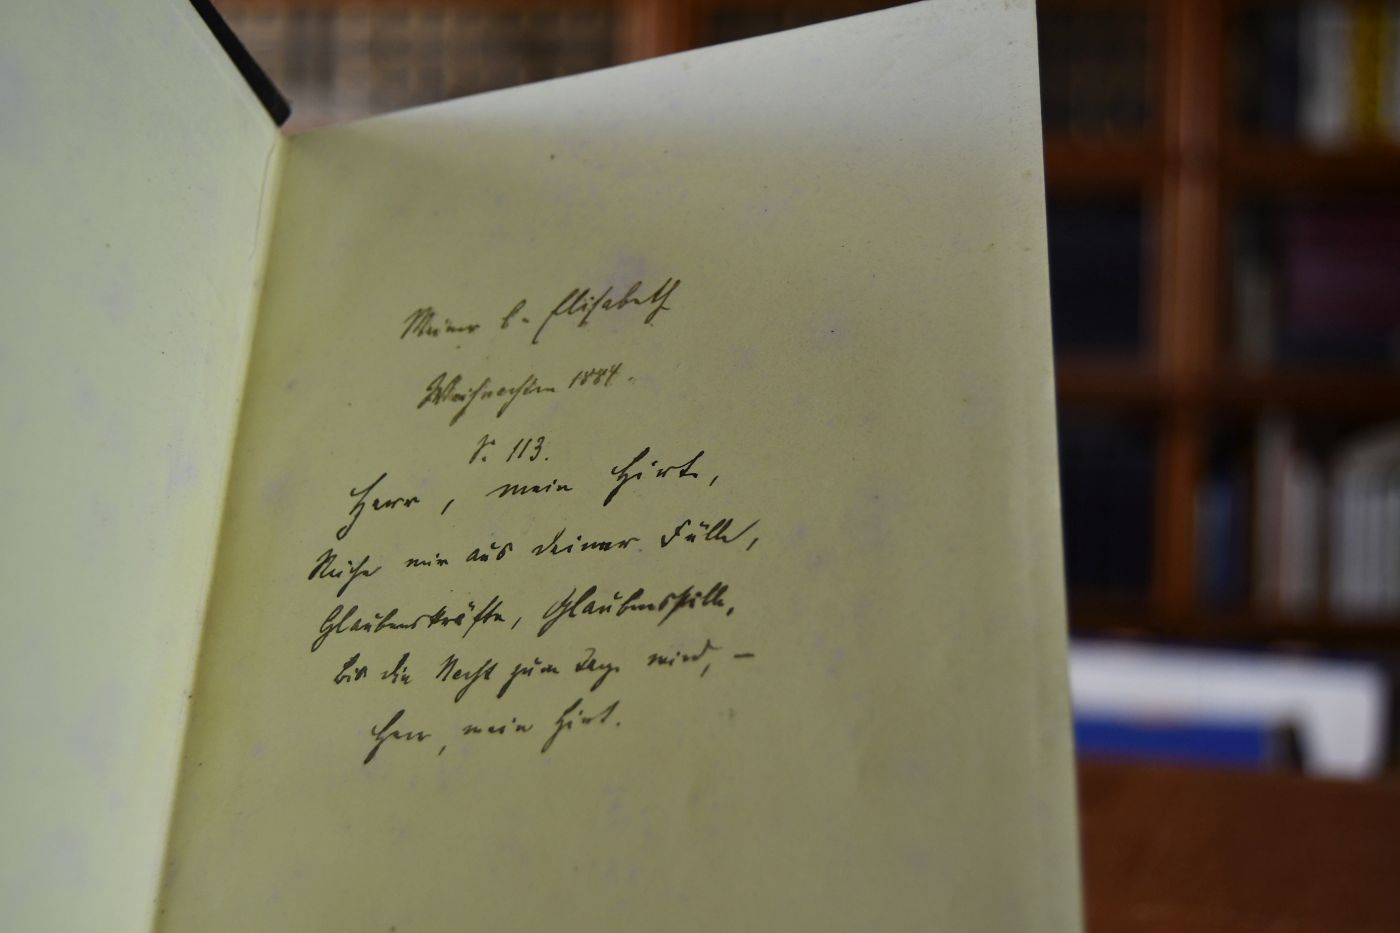 Meiner l. Elisabeth
Weihnachten 1884.
S. 113.
Herr, mein Hirte,
Reiche mir aus deiner Fülle,
Glaubenskräfte, Glaubensstille,
bis die Nacht zum Tage wird, –
Herr, mein Hirt.